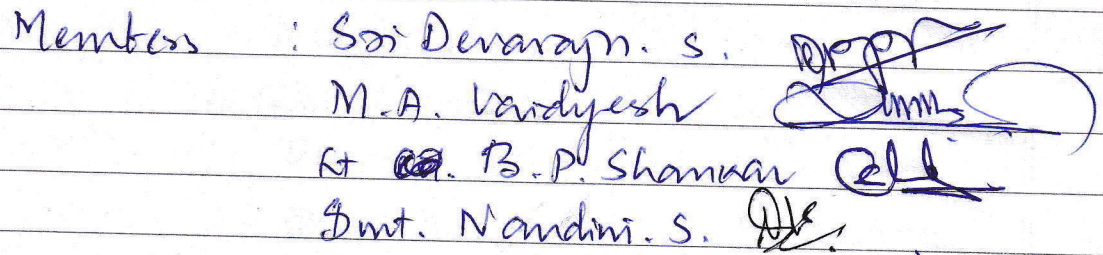 Members : Sri Devaraju. S.
M.A. Vaidyesh
Lt B.P. Shankar
Smt. Nandini. S.